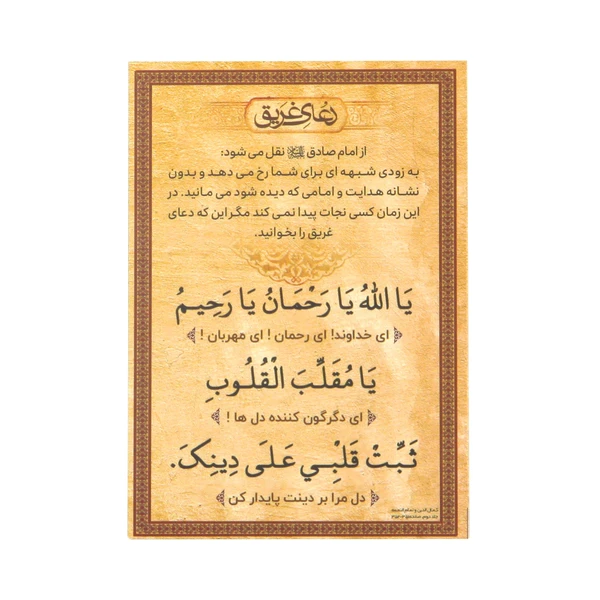 دعای غریق
از امام صادق علیه السلام نقل می شود:
به زودی شبهه ای برای شما رخ می دهد و بدون
نشانه هدایت و امامی که دیده شود می مانید. در
این زمان کسی نجات پیدا نمی کند مگر این که دعای
غریق را بخوانید.
يَا اللهُ يَا رَحْمَانُ يَا رَحِيمُ
ای خداوند! ای رحمان ! ای مهربان !
يَا مُقَلِّبَ الْقُلُوبِ
ای دگرگون کننده دل ها !
ثَبِّتْ قَلْبِي عَلَى دِينِکَ.
دل مرا بر دینت پایدار کن
کمال الدین و تمام النعمه